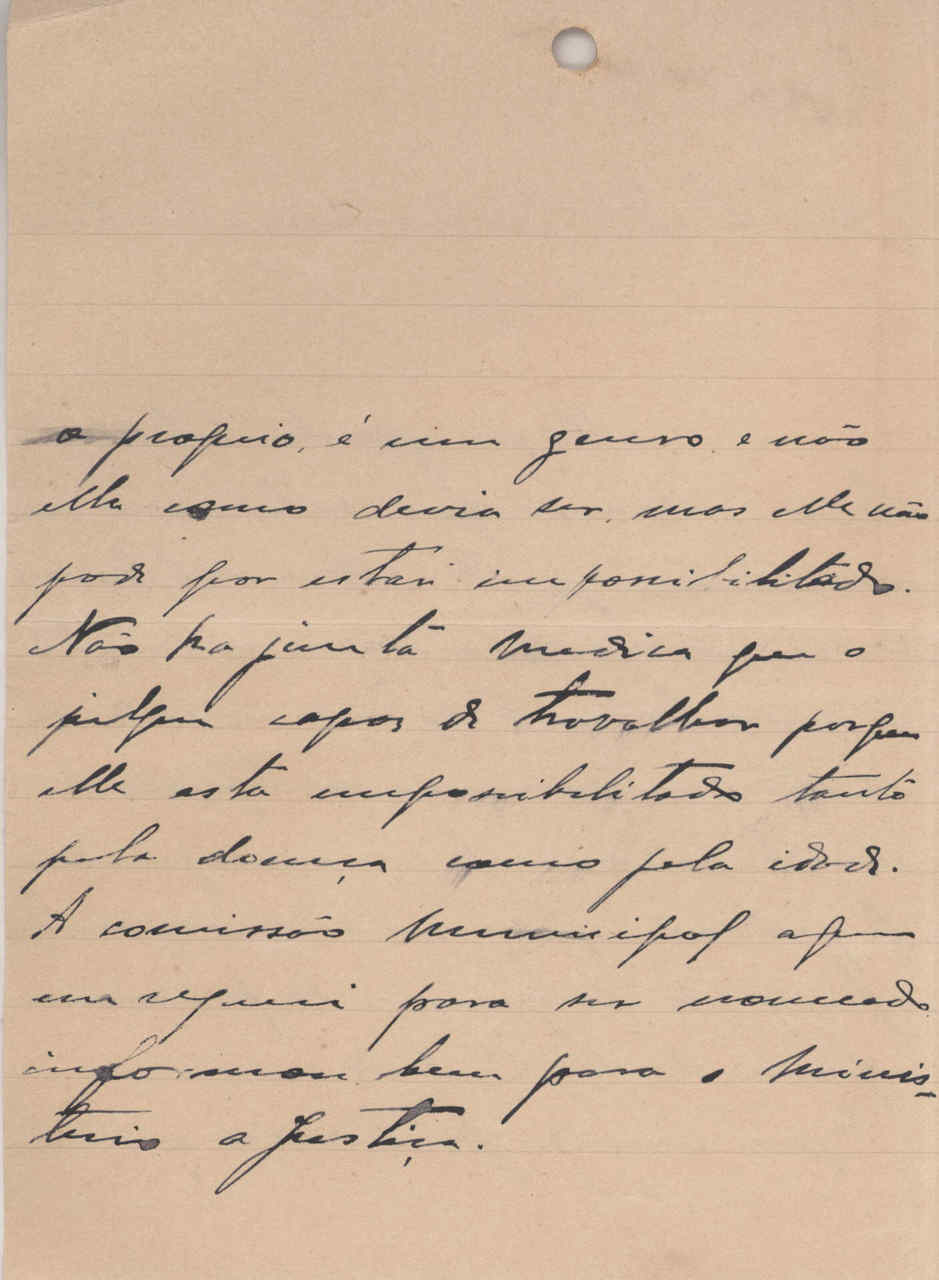 o proprio, é um genro e não
elle como devia ser, mas elle não
pode por estar impossibilitado.
Não ha junta medica que o
julgue capaz de trovalhar porque
elle esta impossibilitado tanto
pela doença como pela idade.
A comissão Municipal a que
me requeri para ser nomeado
informou bem para o Minis-
terio a Justiça.